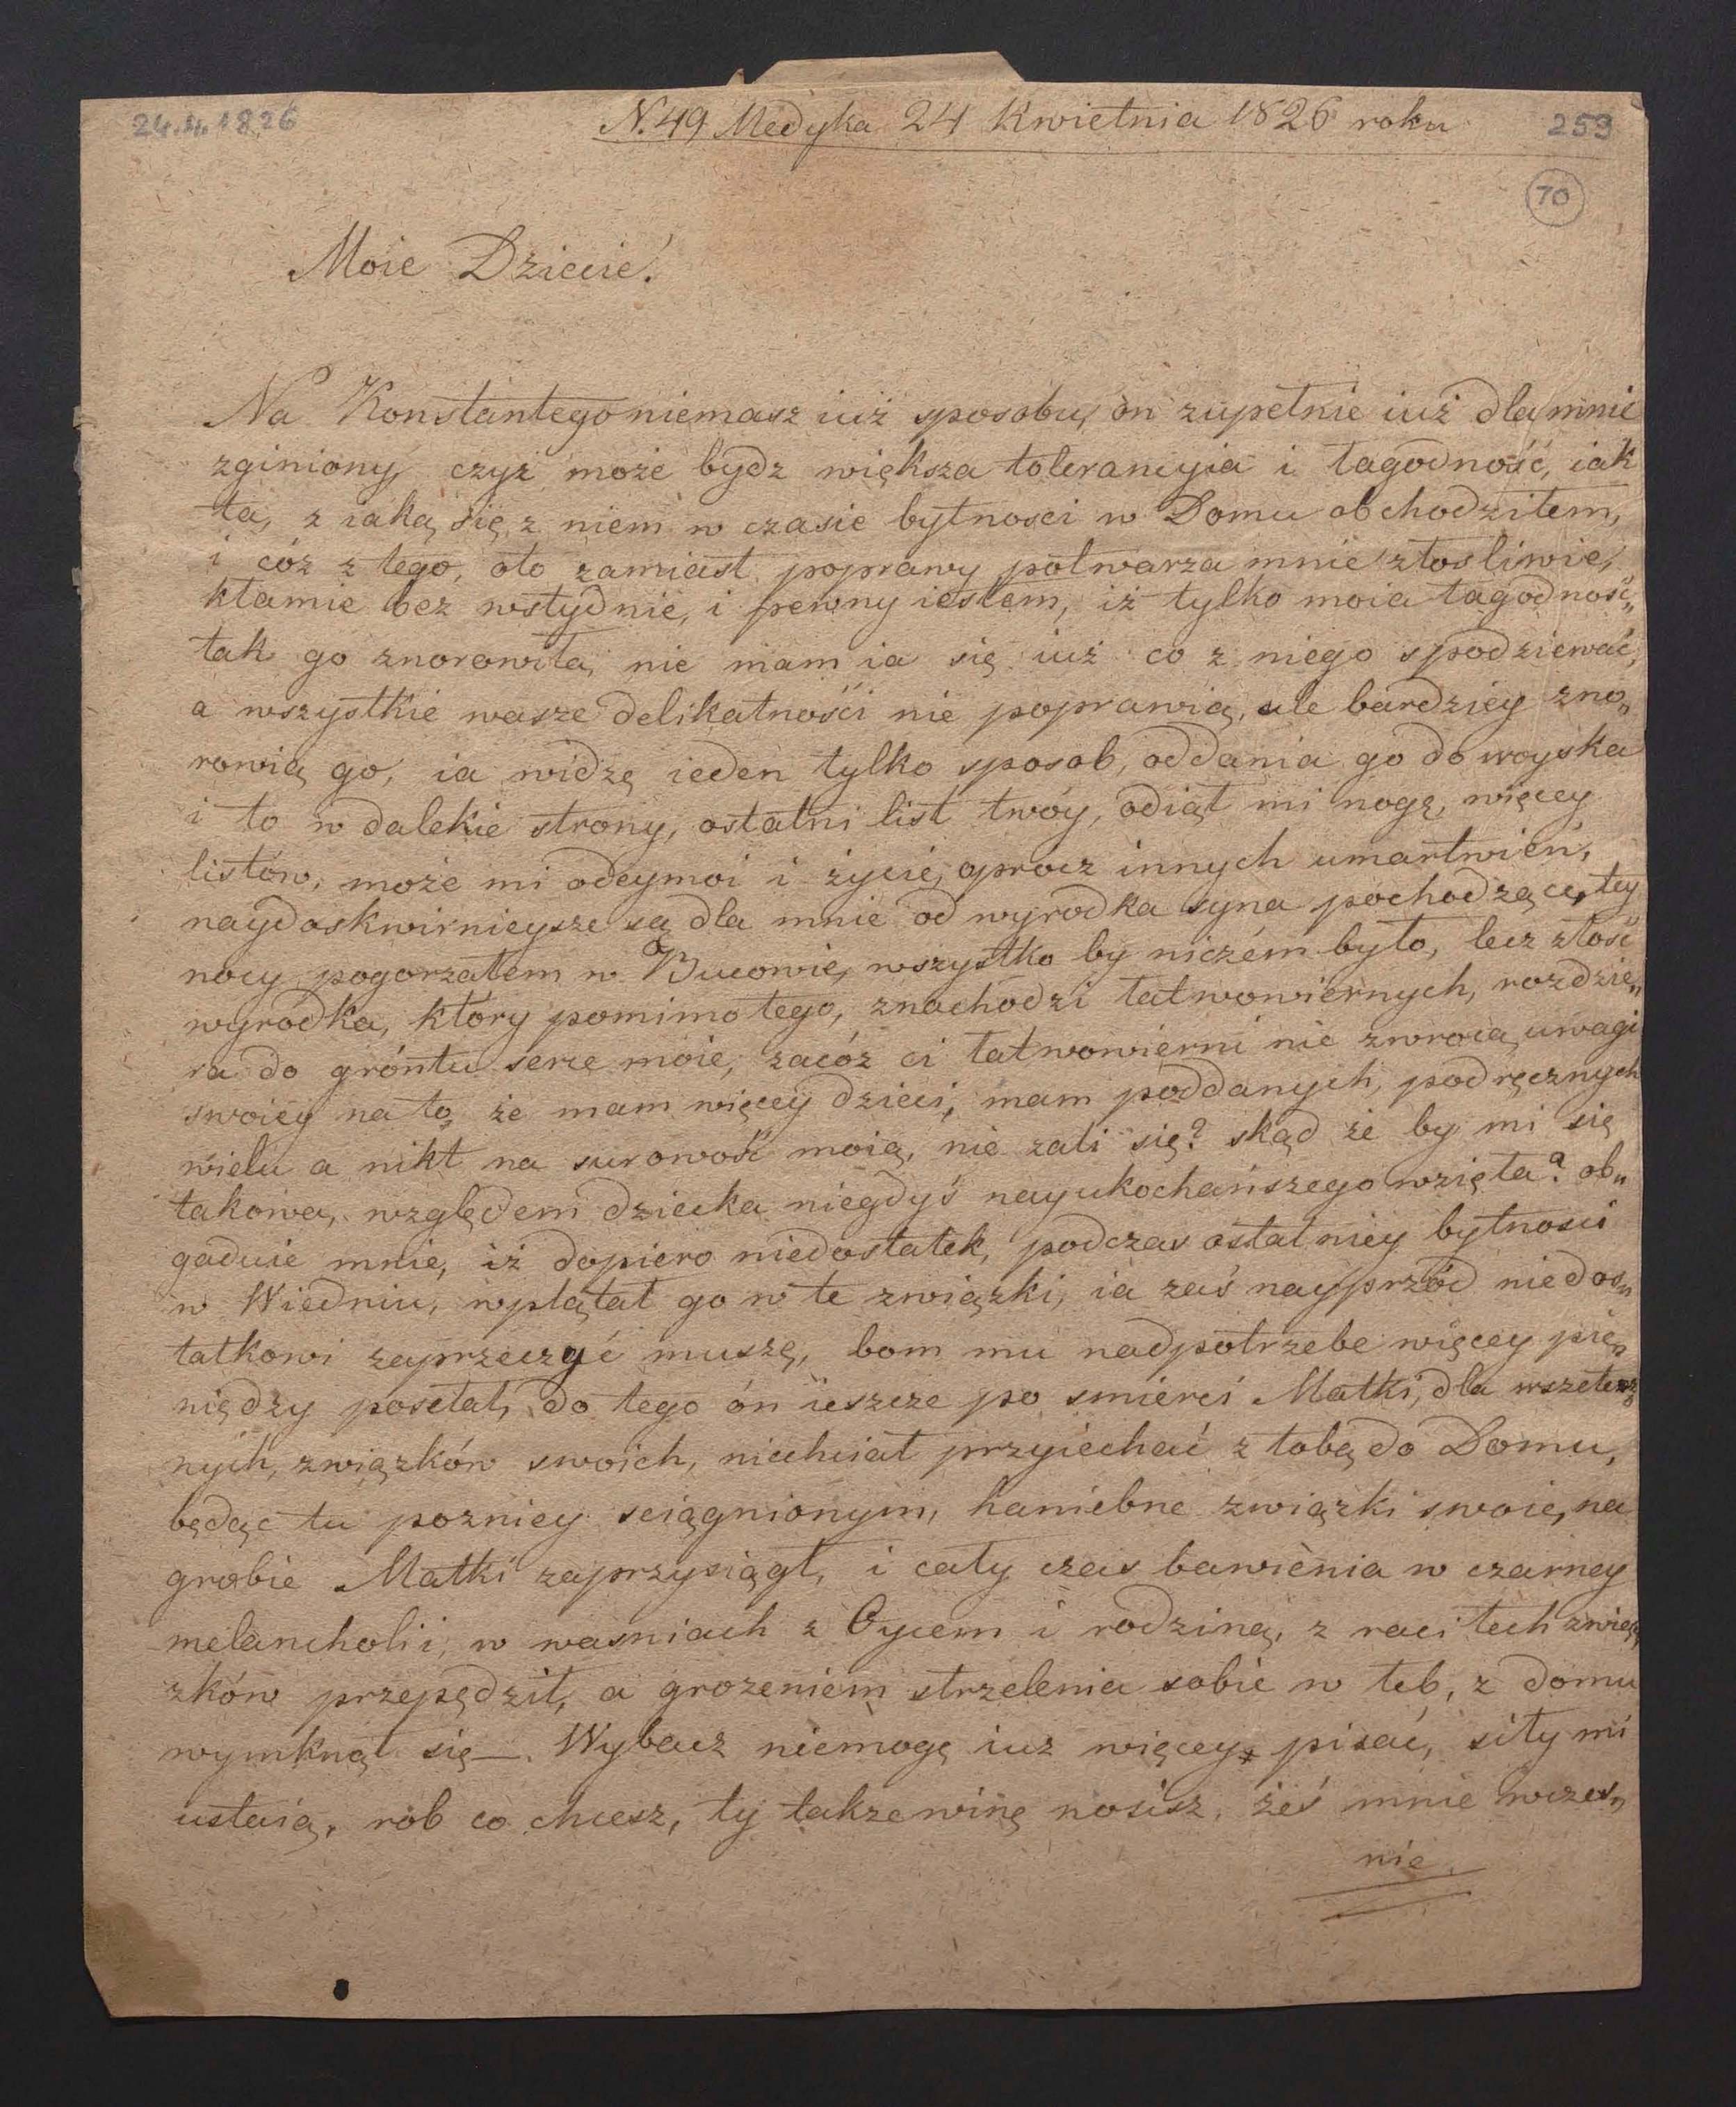 24.4.1826
N. 49 Medyka 24 Kwietnia 1826 roku
259
70
Moie Dziecie!
Na Konstantego niemasz iuż sposobu, on zupełnie iuż dla mnie
zginiony, czyż może bydz większa tolerancyia i łagodność, iak
ta, z iaką się z niem w czasie bytności w Domu obchodziłem,
i cóz z tego, oto zamiast poprawy potwarza mnie złosliwie,
kłamie bez wstydnie, i pewny iestem, iż tylko moia łagodność„
tak go znorowiła, nie mam ia się iuż co z niego spodziewać,
a wszystkie wasze delikatności nie poprawią, ale bardziey zno„
rowią go, ia widzę ieden tylko sposob, oddania go do woyska
i to w dalekie strony, ostatni list twóy, odiął mi nogę, więcey
listów, może mi odeymoi i życie, oprocz innych umartwień,
naydoskwirnieysze są dla mnie od wyrodka syna pochodzące, tey
nocy pogorzałem w Bucowie, wszystko by niczém było, lecz złość
wyrodka, ktory pomimo tego, znachodzi łatwowiernych, rozdzie„
ra do gróntu serce moie, zacóz ci łatwowierni nie zwrocą uwagi
swoiey na to, że mam więcey dzieci, mam poddanych, podręcznych
wielu a nikt na surowość moią, nie zali się? skąd że by mi się
takowa, względem dziecka niegdyś nayukochańszego wzięła? ob„
gaduie mnie, iż dopiero niedostatek, podczas ostatniey bytnosci
w Wiedniu, wplątał go w te związki, ia zaś nayprzód niedos„
tatkowi zaprzeczyć muszę, bom mu nadpotrzebe więcey pie„
niędzy posełał, do tego ón ieszcze po smierci Matki, dla wszetecz„
nych, związków swoich, niechciał przyiechać z tobą do Domu,
będąc tu pozniey sciągnionym, haniebne związki swoie, na
grobie Matki zaprzysiągł, i cały czas bawienia w czarney
melancholii, w wasniach z Oycem i rodziną, z raci tech zwią„
zków przepędził, a grozeniem strzelenia sobie w łeb, z domu
wymknął się —. Wybacz niemogę iuz więcey pisać, siły mi
ustaią, rób co chcesz, ty takze winę nosisz, żeś mnie wczes„
nie